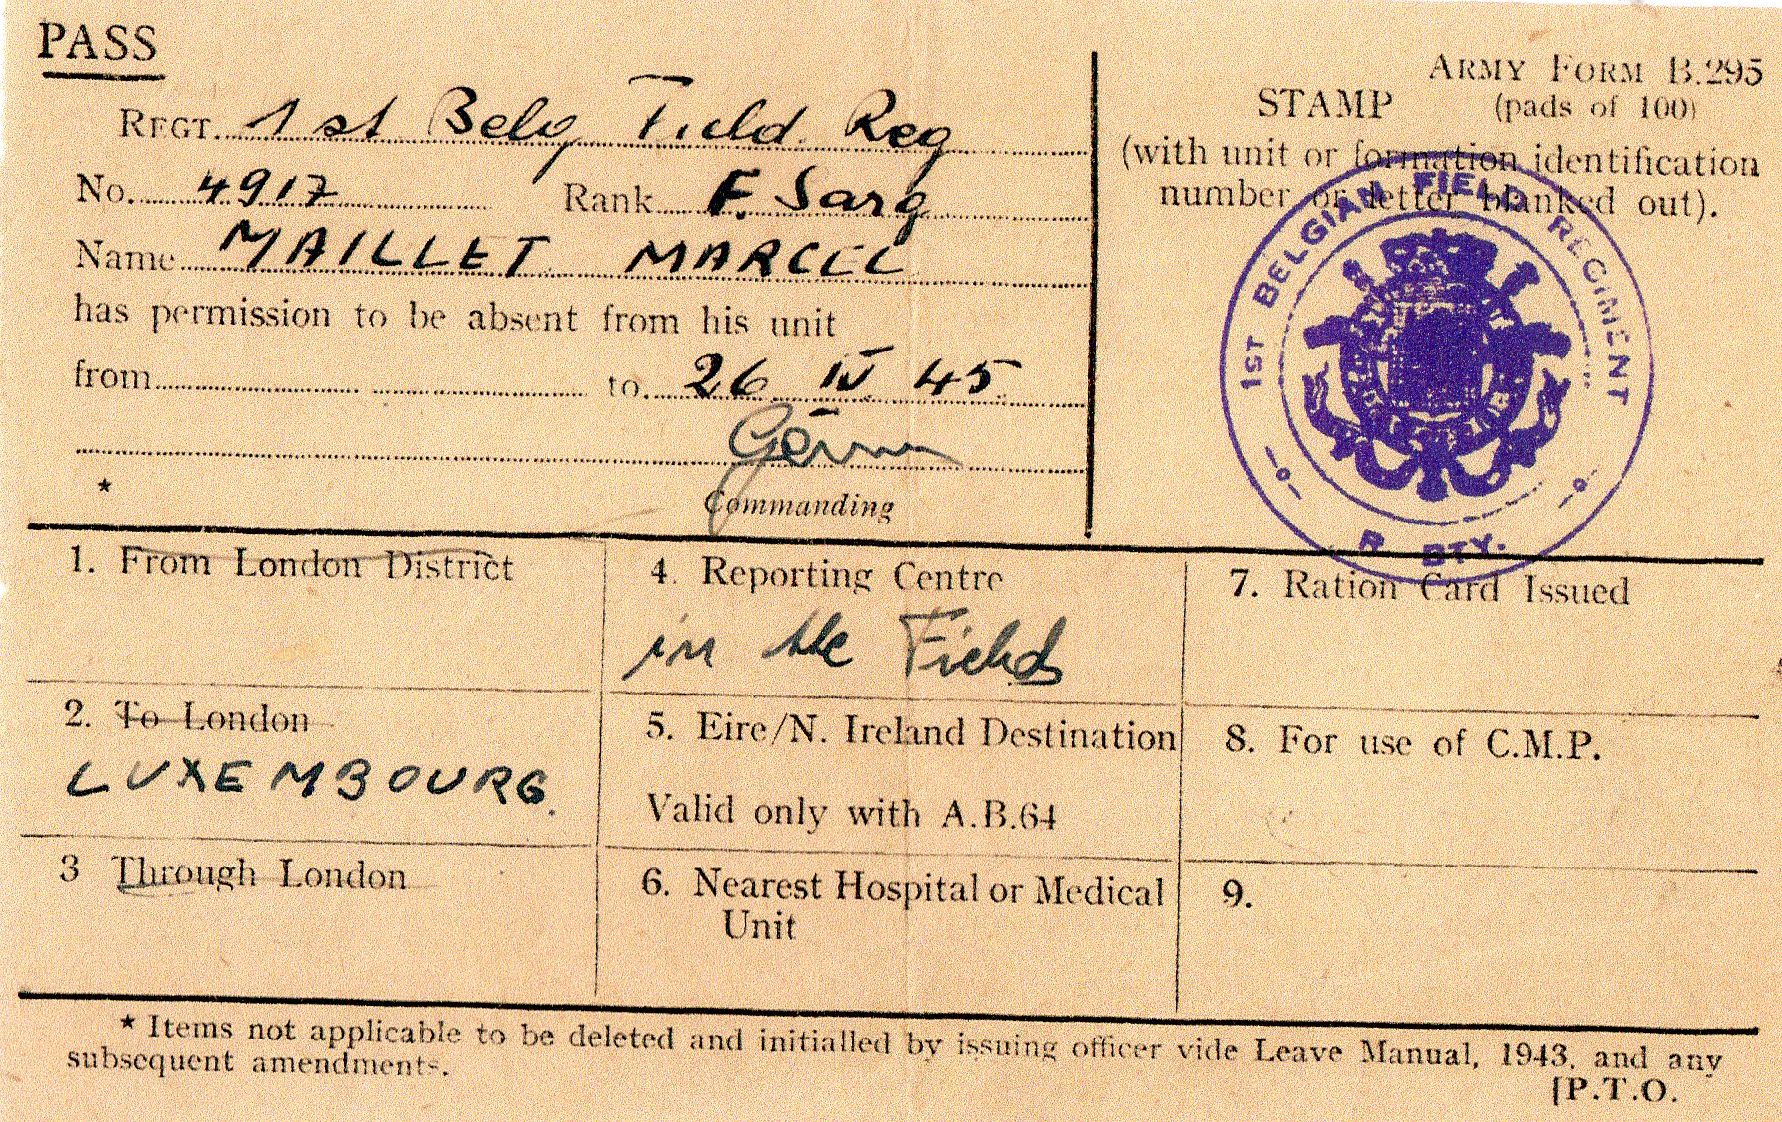 PASS
ARMY FORM B.295
STAMP (pads of 100)
(with unit or formation identification
number or letter blanked out).
REGT. 1st Belg Field Reg
No. 4917 Rank F. Sarg
Name MAILLET MARCEL
has permission to be absent from his unit
from to 26 IV 45
*
Commanding
1ST BELGIAN FIELD REGIMENT
R BTY.
1. From London District
4. Reporting Centre
in the Field
7. Ration Card Issued
2. To London
LUXEMBOURG.
5. Eire/N. Ireland Destination
Valid only with A.B.64
8. For use of C.M.P.
3 Through London
6. Nearest Hospital or Medical
Unit
9.
* Items not applicable to be deleted and initialled by issuing officer vide Leave Manual, 1943, and any
subsequent amendments.
[P.T.O.